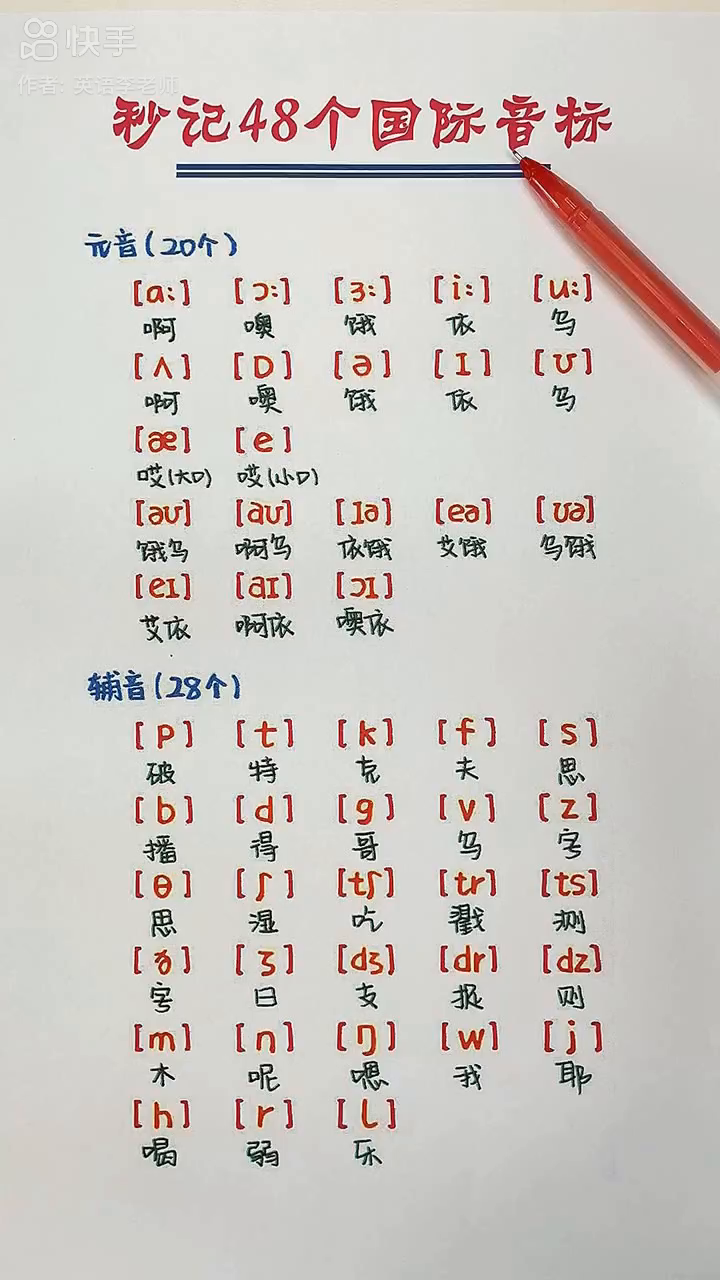 快手
作者: 英语李老师
秒记48个国际音标
元音(20个)
[ɑ:] [ɔ:] [ɜ:] [i:] [u:]
啊 噢 饿 依 乌
[ʌ] [ɒ] [ə] [ɪ] [ʊ]
啊 噢 饿 依 乌
[æ] [e]
哎(大口) 哎(小口)
[əʊ] [aʊ] [ɪə] [eə] [ʊə]
饿乌 啊乌 依饿 艾饿 乌饿
[eɪ] [aɪ] [ɔɪ]
艾依 啊依 噢依
辅音(28个)
[p] [t] [k] [f] [s]
破 特 克 夫 思
[b] [d] [g] [v] [z]
播 得 哥 乌 字
[θ] [ʃ] [tʃ] [tr] [ts]
思 湿 吃 戳 测
[ð] [ʒ] [dʒ] [dr] [dz]
字 日 支 抓 则
[m] [n] [ŋ] [w] [j]
木 呢 嗯 我 耶
[h] [r] [l]
喝 弱 乐